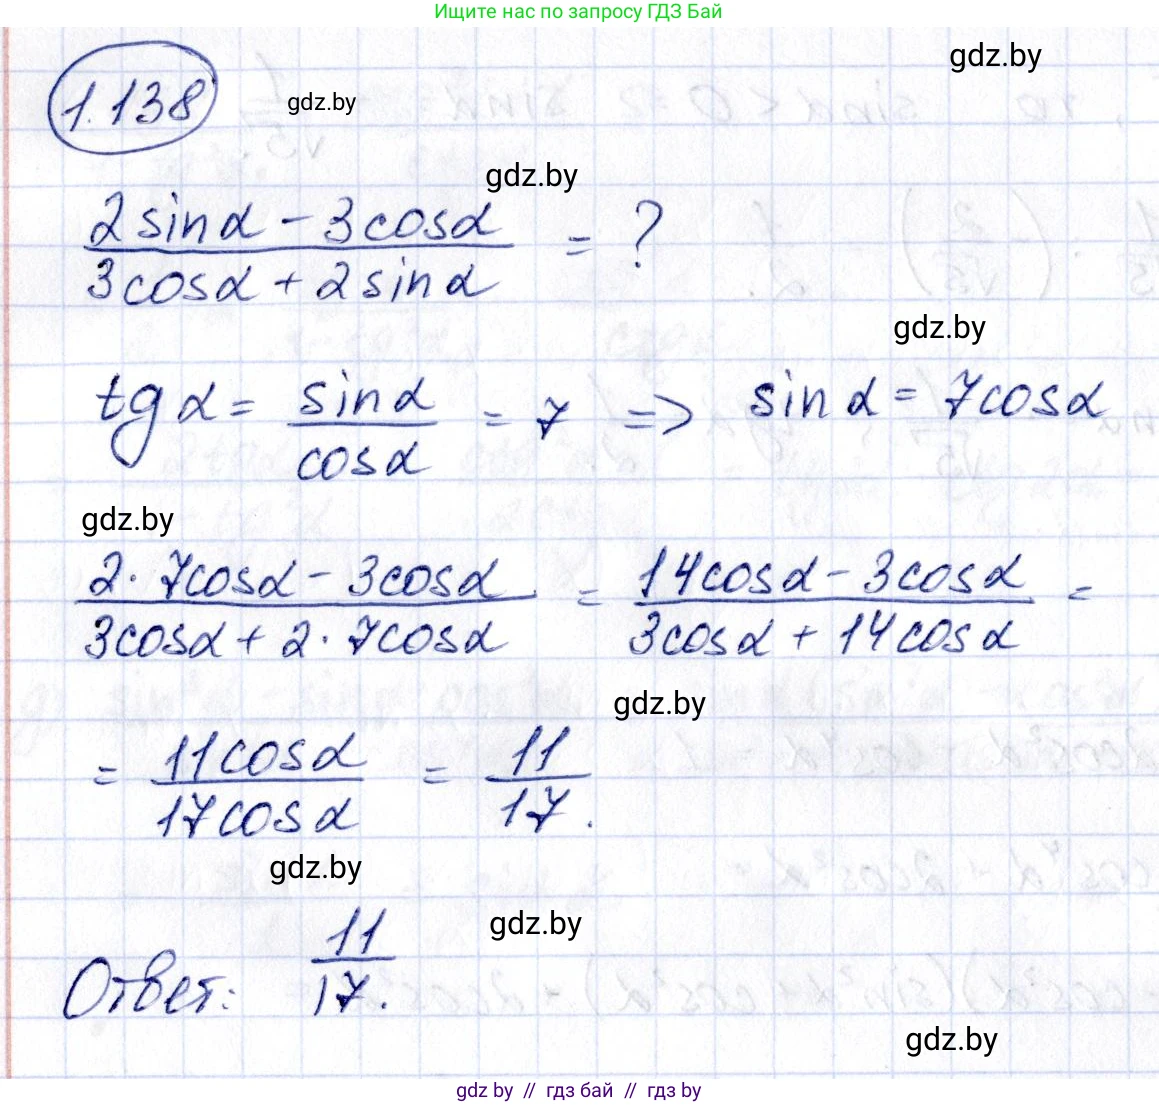 Ищите нас по запросу ГДЗ Бай
1.138
gdz.by
gdz.by
gdz.by
(2sinα - 3cosα)/(3cosα + 2sinα) = ?
gdz.by
tgα = sinα/cosα = 7 => sinα = 7cosα
gdz.by
(2·7cosα - 3cosα)/(3cosα + 2·7cosα) = (14cosα - 3cosα)/(3cosα + 14cosα) =
gdz.by
= 11cosα/17cosα = 11/17.
gdz.by
gdz.by
Ответ: 11/17.
gdz.by
gdz by // гдз бай // гдз by